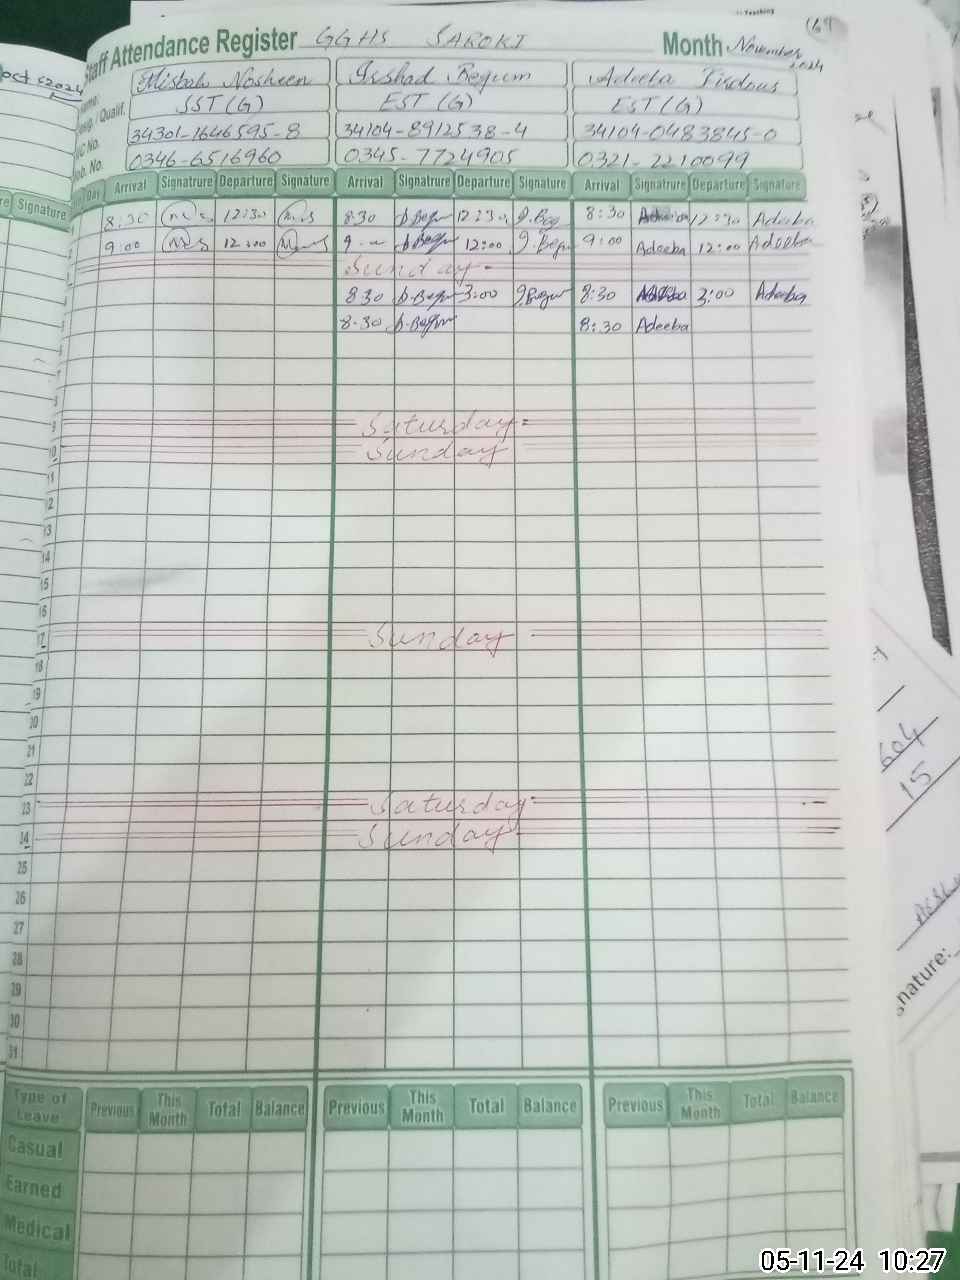 Teaching
69
Staff Attendance Register GGHS SAROKI Month November 2024
Oct 2024
Name: Misbah Nosheen Irshad Begum Adeeba Firdous
Desig. / Qualif. SST (G) EST (G) EST (G)
NIC No. 34301-1646595-8 34104-8912538-4 34104-0483845-0
Mob. No. 0346-6516960 0345-7724905 0321-2210099
Signature Day Arrival Signatrure Departure Signature Arrival Signatrure Departure Signature Arrival Signatrure Departure Signature
8:30 12:30 8:30 12:30 8:30 Adeeba 12:30 Adeeba
9:00 12:00 9 12:00 9:00 Adeeba 12:00 Adeeba
Sunday
8:30 3:00 8:30 Adeeba 3:00 Adeeba
8:30 8:30 Adeeba
9 Saturday
10 Sunday
11
12
13
14
15
16
17 Sunday
18
19
20
21
22
23 Saturday
24 Sunday
25
26
27
28
29
30
31
604
15
Signature:
Type of Leave Previous This Month Total Balance Previous This Month Total Balance Previous This Month Total Balance
Casual
Earned
Medical
Total
05-11-24 10:27